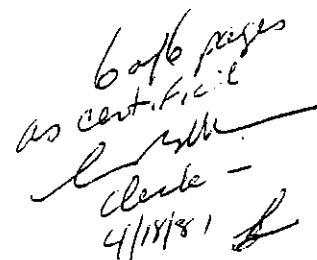 6 of 6 pages
as certified
Clerk –
4/18/81